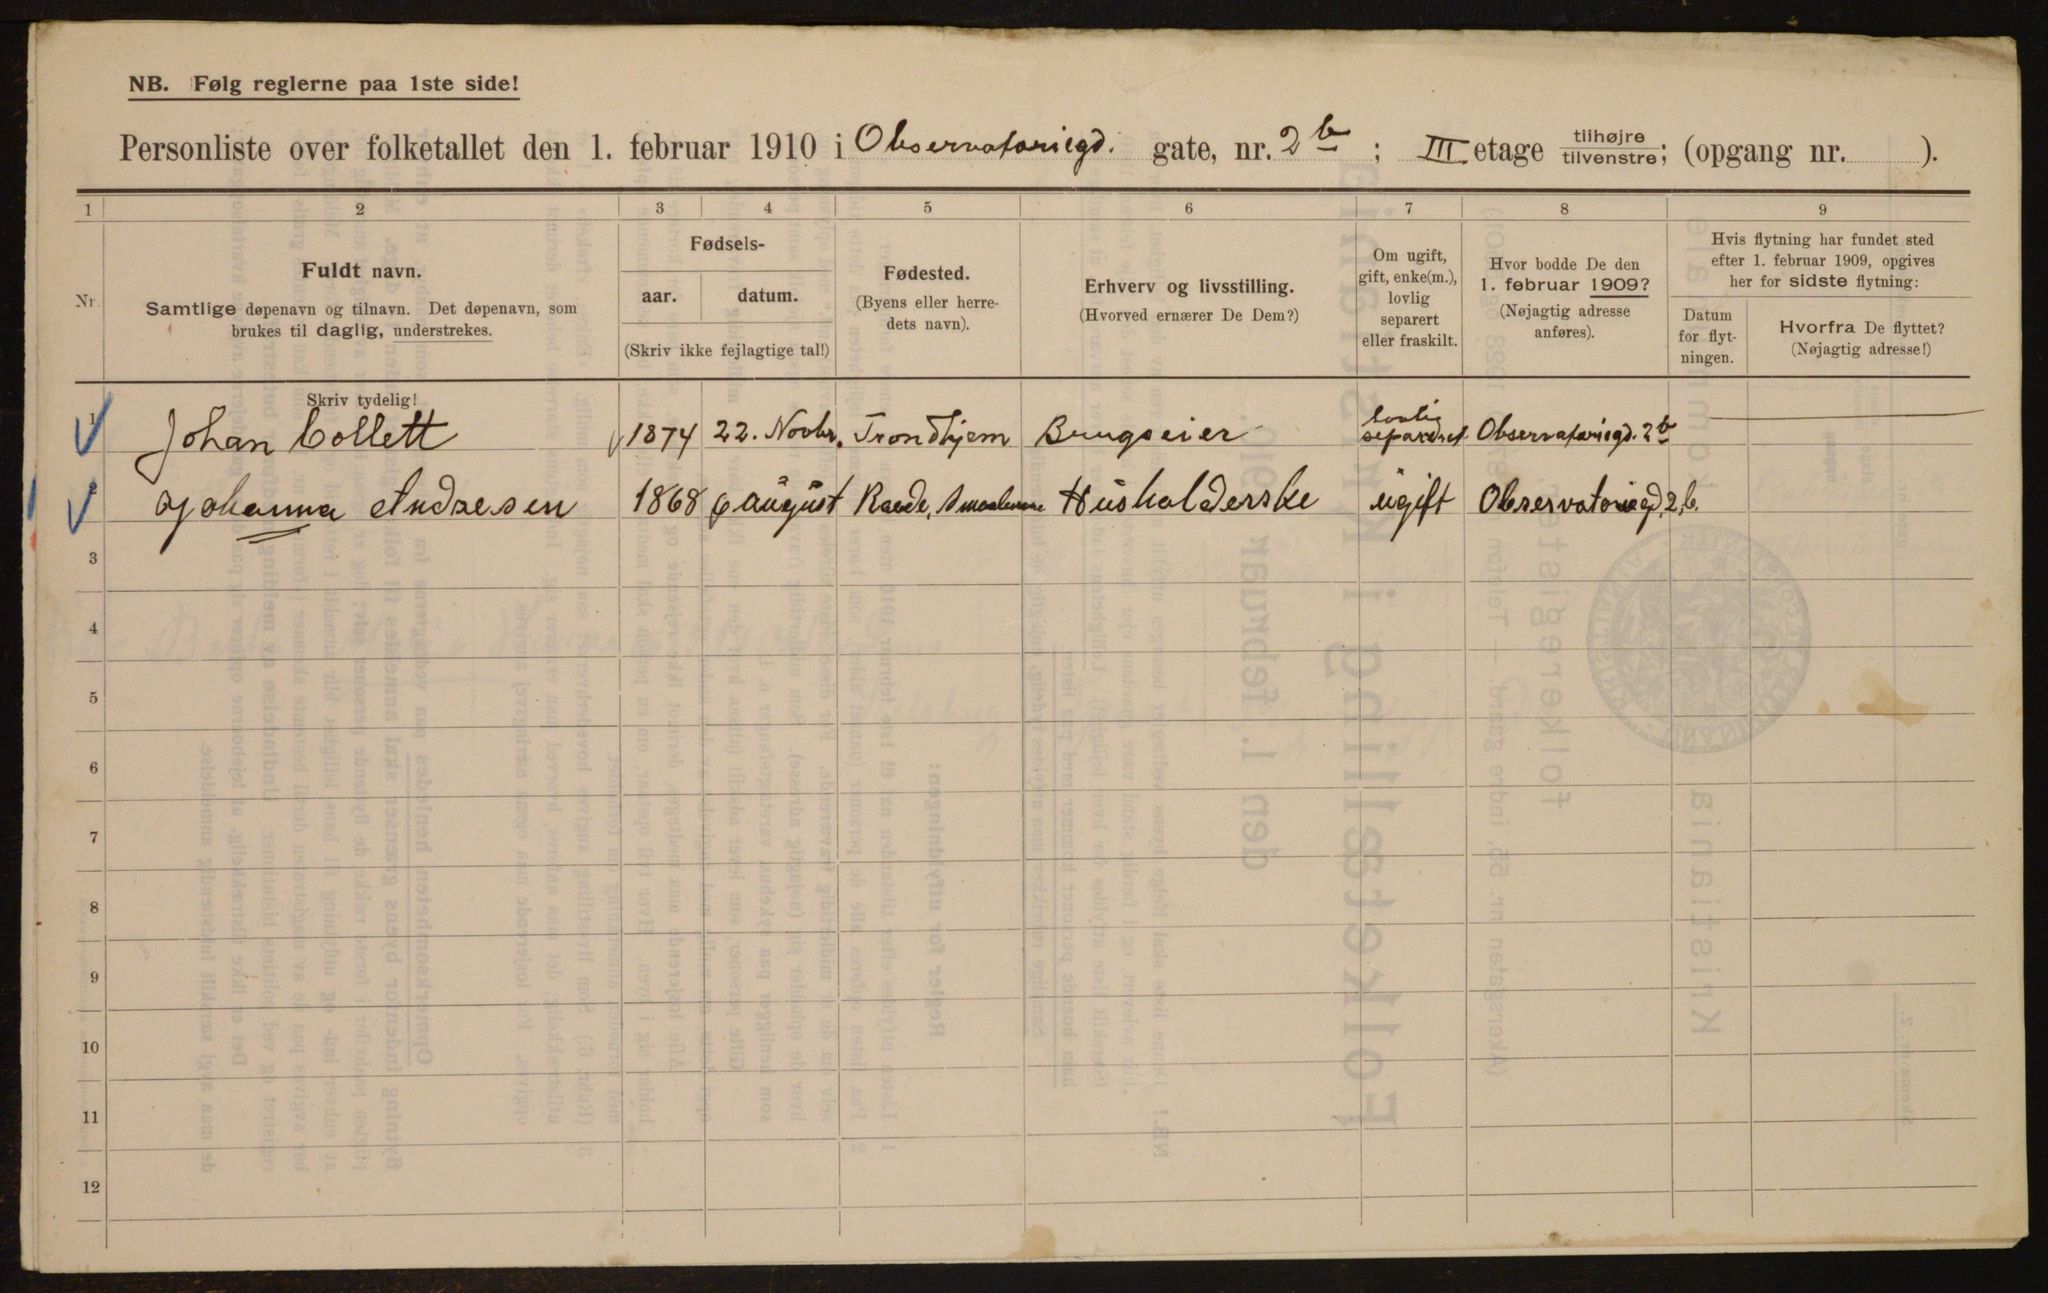 NB. Følg reglerne paa 1ste side!
Personliste over folketallet den 1. februar 1910 i Observatoriegd. gate, nr. 2b; III etage tilhøjre/tilvenstre; (opgang nr. ).
1 2 3 4 5 6 7 8 9
Nr.
Fuldt navn.
Samtlige døpenavn og tilnavn. Det døpenavn, som
brukes til daglig, understrekes.
Fødsels-
aar. datum.
(Skriv ikke fejlagtige tal!)
Fødested.
(Byens eller herre-
dets navn).
Erhverv og livsstilling.
(Hvorved ernærer De Dem?)
Om ugift,
gift, enke(m.),
lovlig
separert
eller fraskilt.
Hvor bodde De den
1. februar 1909?
(Nøjagtig adresse
anføres).
Hvis flytning har fundet sted
efter 1. februar 1909, opgives
her for sidste flytning:
Datum
for flyt-
ningen.
Hvorfra De flyttet?
(Nøjagtig adresse!)
Skriv tydelig!
1 Johan Collett 1874 22. Novbr. Trondhjem Brugseier lovlig separeret Observatoriegd. 2b
2 Johanna Andresen 1868 6 august Raade, Smaalenene Husholderske ugift Observatoriegd, 2, b.
3
4
5
6
7
8
9
10
11
12